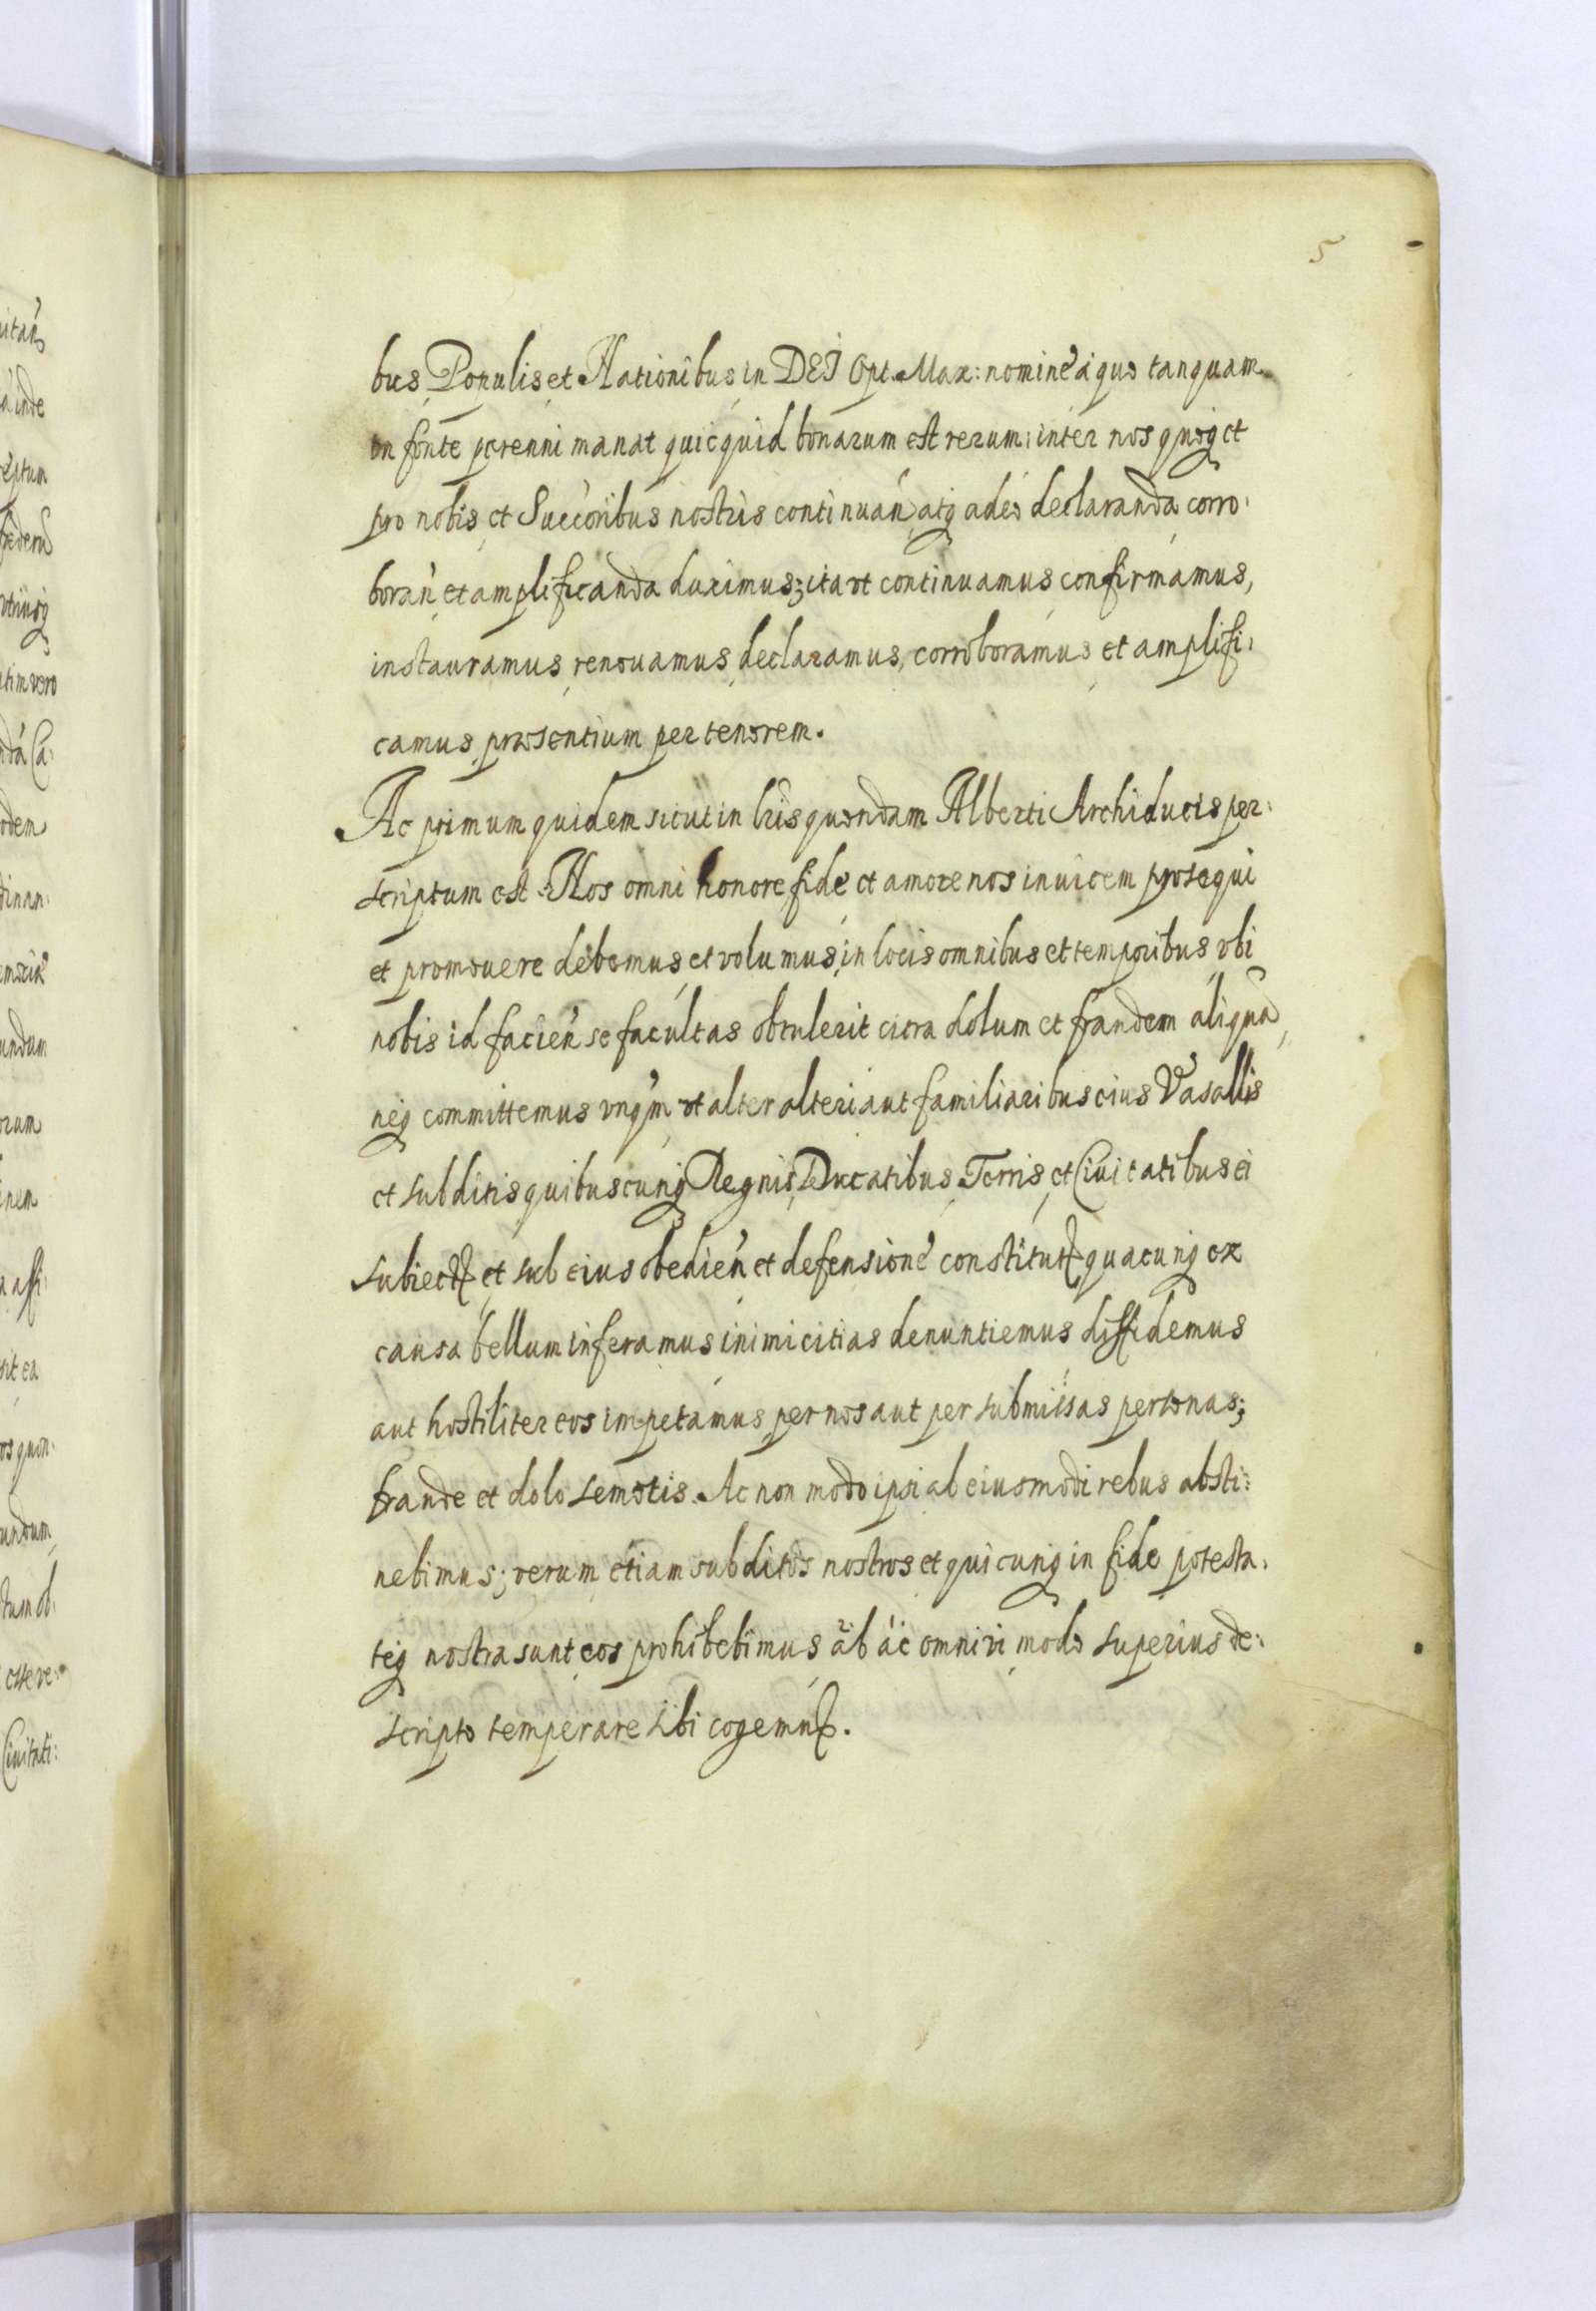 5
bus Populis et Nationibus in DEI Opt. Max: nomine à quo tanquam
in fonte perenni manat quicquid bonarum est rerum: inter nos quoq et
pro nobis et Succoribus nostris continuan atq adeo declaranda corro:
boran et amplificanda duximus; ita vt continuamus confirmamus,
instauramus renouamus declaramus, corroboramus et amplifi:
camus præsentium per tenorem.
Ac primum quidem sicut in lris quondam Alberti Archiducis per:
scriptum est. Nos omni honore fide et amore nos inuicem prosequi
et promouere debemus et volumus, in locis omnibus et temporibus vbi
nobis id facien se facultas obtulerit citra dolum et fraudem aliqua,
neq committemus vnqm vt alter alteri aut familiaribus eius Vasallis
et subditis quibuscunq Regnis, Ducatibus, Terris, et Ciuitatibus ei
subiectis et sub eius obedien et defensione constitutis quacunq ex
causa bellum inferamus inimicitias denuntiemus diffidemus
aut hostiliter eos impetamus per nos aut per submissas personas;
fraude et dolo semotis. Ac non modo ipsi ab eiusmodi rebus absti:
nebimus; verum etiam subditos nostros et quicunq in fide potesta:
teq nostra sunt eos prohibebimus ab ac omni vi modo superius de:
scripto temperare sibi cogemus.
itan
à inde
eptum
federu
vtriusq
tim vero
nda Ca:
odem
dinan:
undum
orum
inem
assi:
sit ea
os quon:
undum,
tum ob:
esse ve:
Ciuitati: